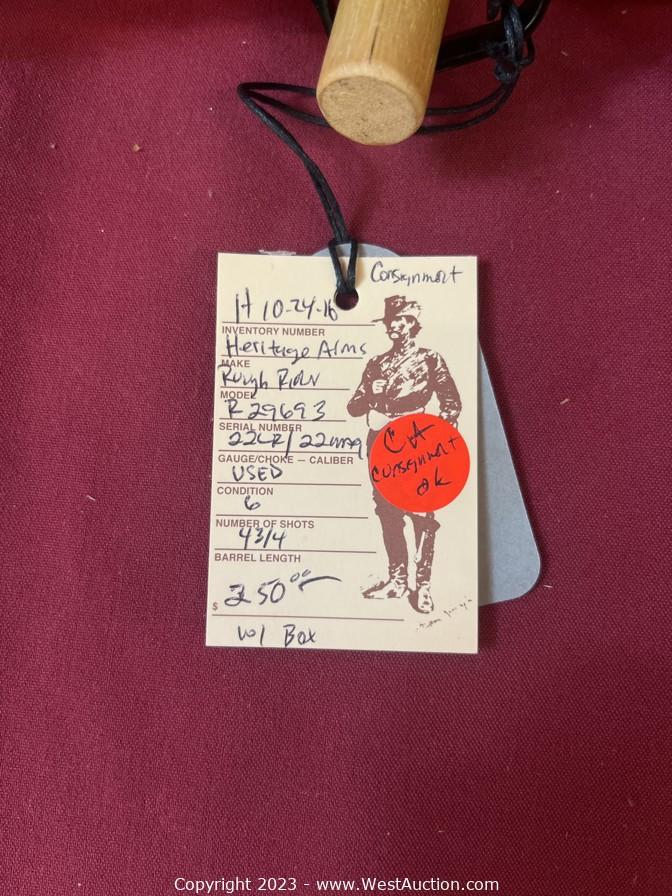 Consignment
H 10-24-16
INVENTORY NUMBER
Heritage Arms
MAKE
Rough Rider
MODEL
R29693
SERIAL NUMBER
22LR/22mag
GAUGE/CHOKE — CALIBER
USED
CONDITION
6
NUMBER OF SHOTS
4 3/4
BARREL LENGTH
$ 250.00
w/ Box
CA
consignment
ok
Copyright 2023 - www.WestAuction.com